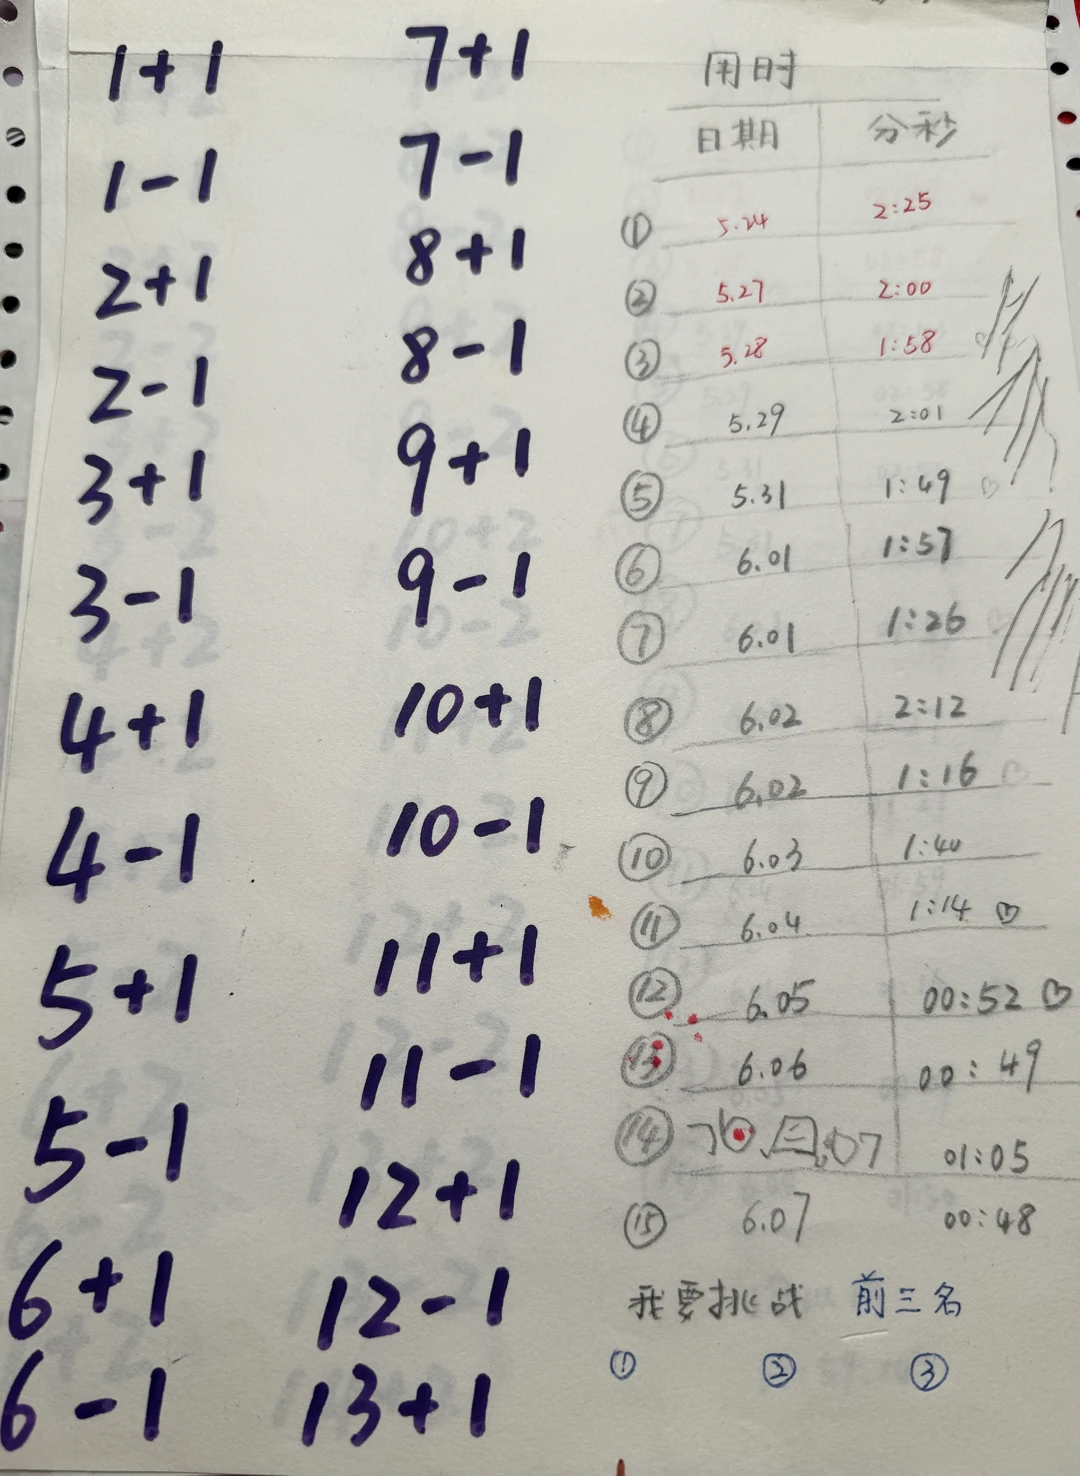 1+1
1-1
2+1
2-1
3+1
3-1
4+1
4-1
5+1
5-1
6+1
6-1
7+1
7-1
8+1
8-1
9+1
9-1
10+1
10-1
11+1
11-1
12+1
12-1
13+1
用时
日期 分秒
① 5.24 2:25
② 5.27 2:00
③ 5.28 1:58
④ 5.29 2:01
⑤ 5.31 1:49 ♡
⑥ 6.01 1:57
⑦ 6.01 1:26 ♡
⑧ 6.02 2:12
⑨ 6.02 1:16 ♡
⑩ 6.03 1:40
⑪ 6.04 1:14 ♡
⑫ 6.05 00:52 ♡
⑬ 6.06 00:49
⑭ 07 01:05
⑮ 6.07 00:48
我要挑战 前三名
① ② ③